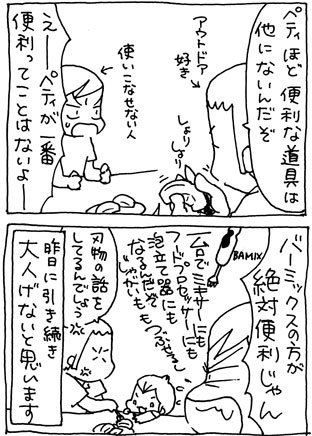 ペティほど便利な道具は
他にないんだぞ
アウトドア
好き
しょり
しょり
使いこなせない人
えーペティが一番
便利ってことはないよー
バーミックスの方が
絶対便利じゃん
BAMIX
一台でミキサーにも
フードプロセッサーにも
泡立て器にも
なるんだぞ
じゃがいもも
つぶせるし
刃物の話を
してるんでしょう
昨日に引き続き
大人げないと思います